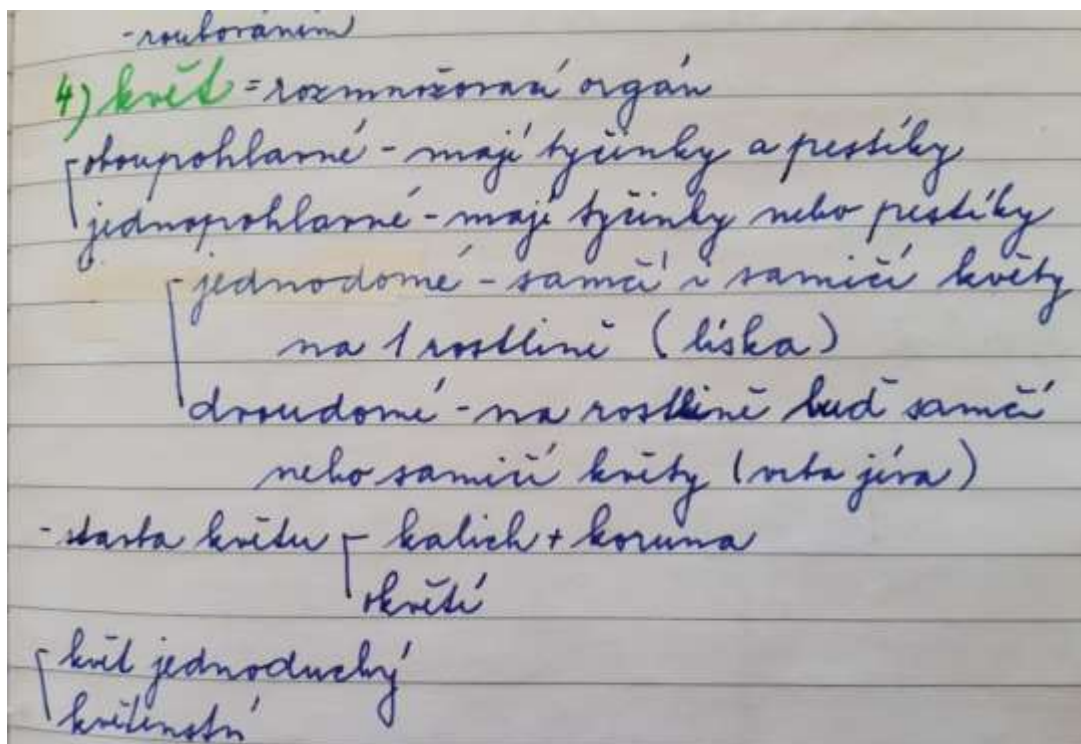 -roubováním
4) květ = rozmnožovací orgán
oboupohlavné - mají tyčinky a pestíky
jednopohlavné - mají tyčinky nebo pestíky
- jednodomé - samčí i samičí květy
na 1 rostlině (líska)
dvoudomé - na rostlině buď samčí
nebo samičí květy (vrba jíva)
- stavba květu - kalich + koruna
okvětí
květ jednoduchý
květenství